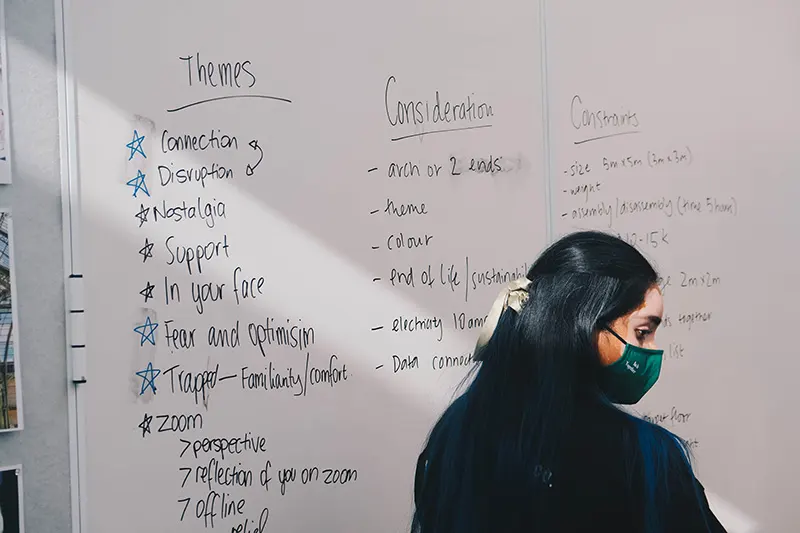 Themes
Connection
Disruption
Nostalgia
Support
In your face
Fear and optimisim
Trapped – Familiarity/comfort
ZOOM
> perspective
> reflection of you on zoom
> offline
relief
Consideration
- arch or 2 ends
- theme
- colour
- end of life/sustainabil
- electricity 10am
- Data connect
Constraints
- size 5m x 5m (3m x 3m)
- weight
- assembly/disassembly (time 5 hours)
12-15k
2m x 2m
together
list
floor